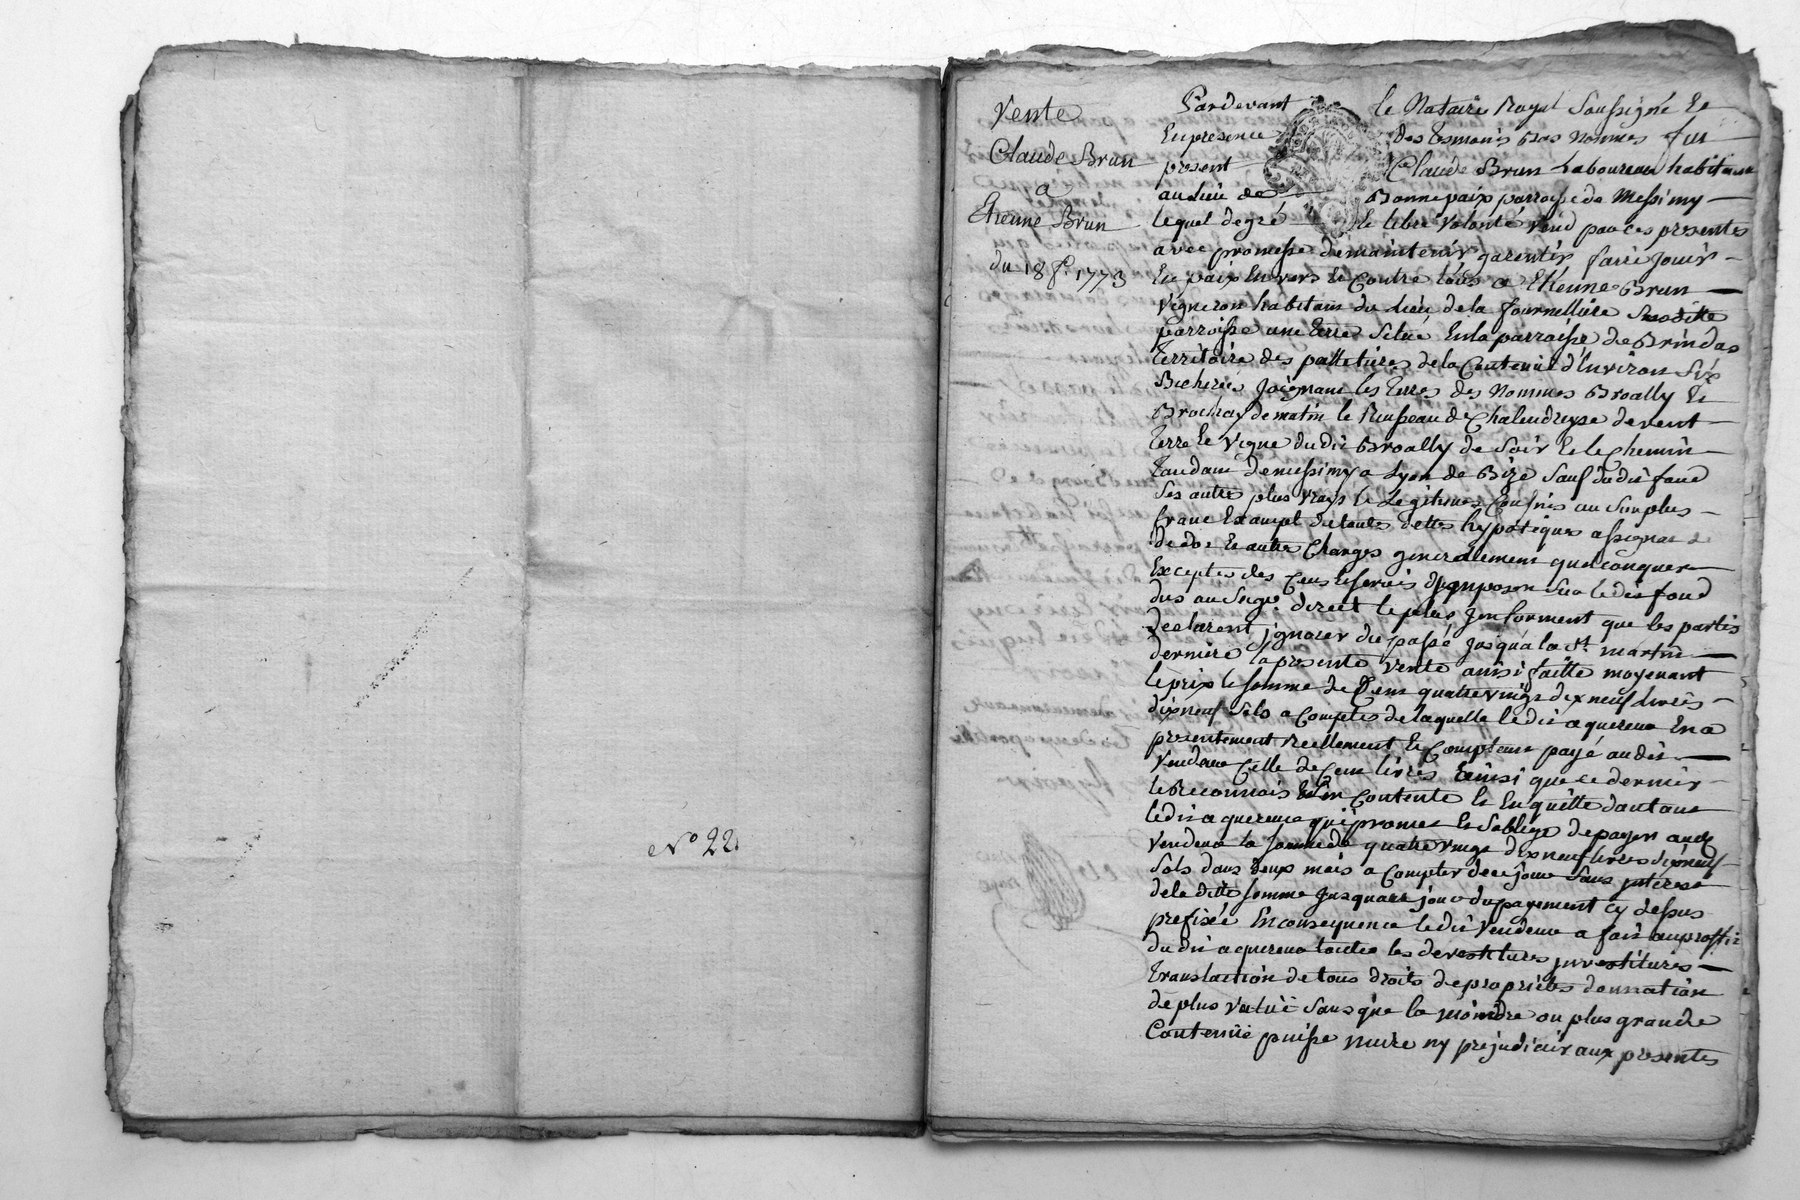 N° 22
Vente
Claude Brun
a
Etienne Brun
du 18 1773
Pardevant le Notaire Royal Soussigné Et
En presence des tesmoins Bas nommés fut
present Claude Brun Laboureur habitant
au lieu de Bonnepaix parroisse de Messimy
lequel de gré et libre Volonté Vend par ces presentes
avec promesse de maintenir garentir faire jouir
En paix Envers Et Contre tous a Etienne Brun
Vigneron habitant du lieu de la fournelliere Susditte
parroisse une terre Située En la parroisse de Brindas
territoire des de la Contenue d'Environ Six
Bicherées joignant les terres des Nommés Broally Et
Brochay de matin le Ruisseau de Chalendreyse de vent
terre Et Vigne du dit Broally de Soir Et le Chemin
tandant de messimy a Lyon de Bize Sauf du dit fond
Ses autre plus vrays Et Legitimes Confins au Surplus
franc Exampt de toutes dettes hypoteques assignat de
dot Et autre Charges generalement quelconques
Exceptés des Cens Et Servis Sur le dit fond
dus au Seigr. direct le plus que les partis
declarent jgnorer du passé jusqu'a la St. martin
derniere la presente vente ainsi faitte moyenant
le prix Et Somme de Cent quatre vingt dix neuf livres
dix neuf Sols a Compte de laquelle le dit aquereur En a
presentement reellement Et Comptant payé au dit
Vendeur Celle de Cent livres Einsi que ce dernier
le Reconnois Et S'en Contente Et En quitte d'autant
le dit aquereur qui promet Et S'oblige de payer aud.
Vendeur la Somme de quatre vingt dix neuf livres dix neuf
Sols dans deux mois a Compter de ce jour Sans jnterest
de la ditte Somme jusqu'au jour du payement Cy dessus
prefixée En consequence le dit Vendeur a fait au proffit
du dit aquereur toutes les devestitures jnvestitures
translaction de tous droits de propriétés donnation
de plus value Sans que la moindre ou plus grande
Contenue puisse nuire ny prejudicier aux presentes